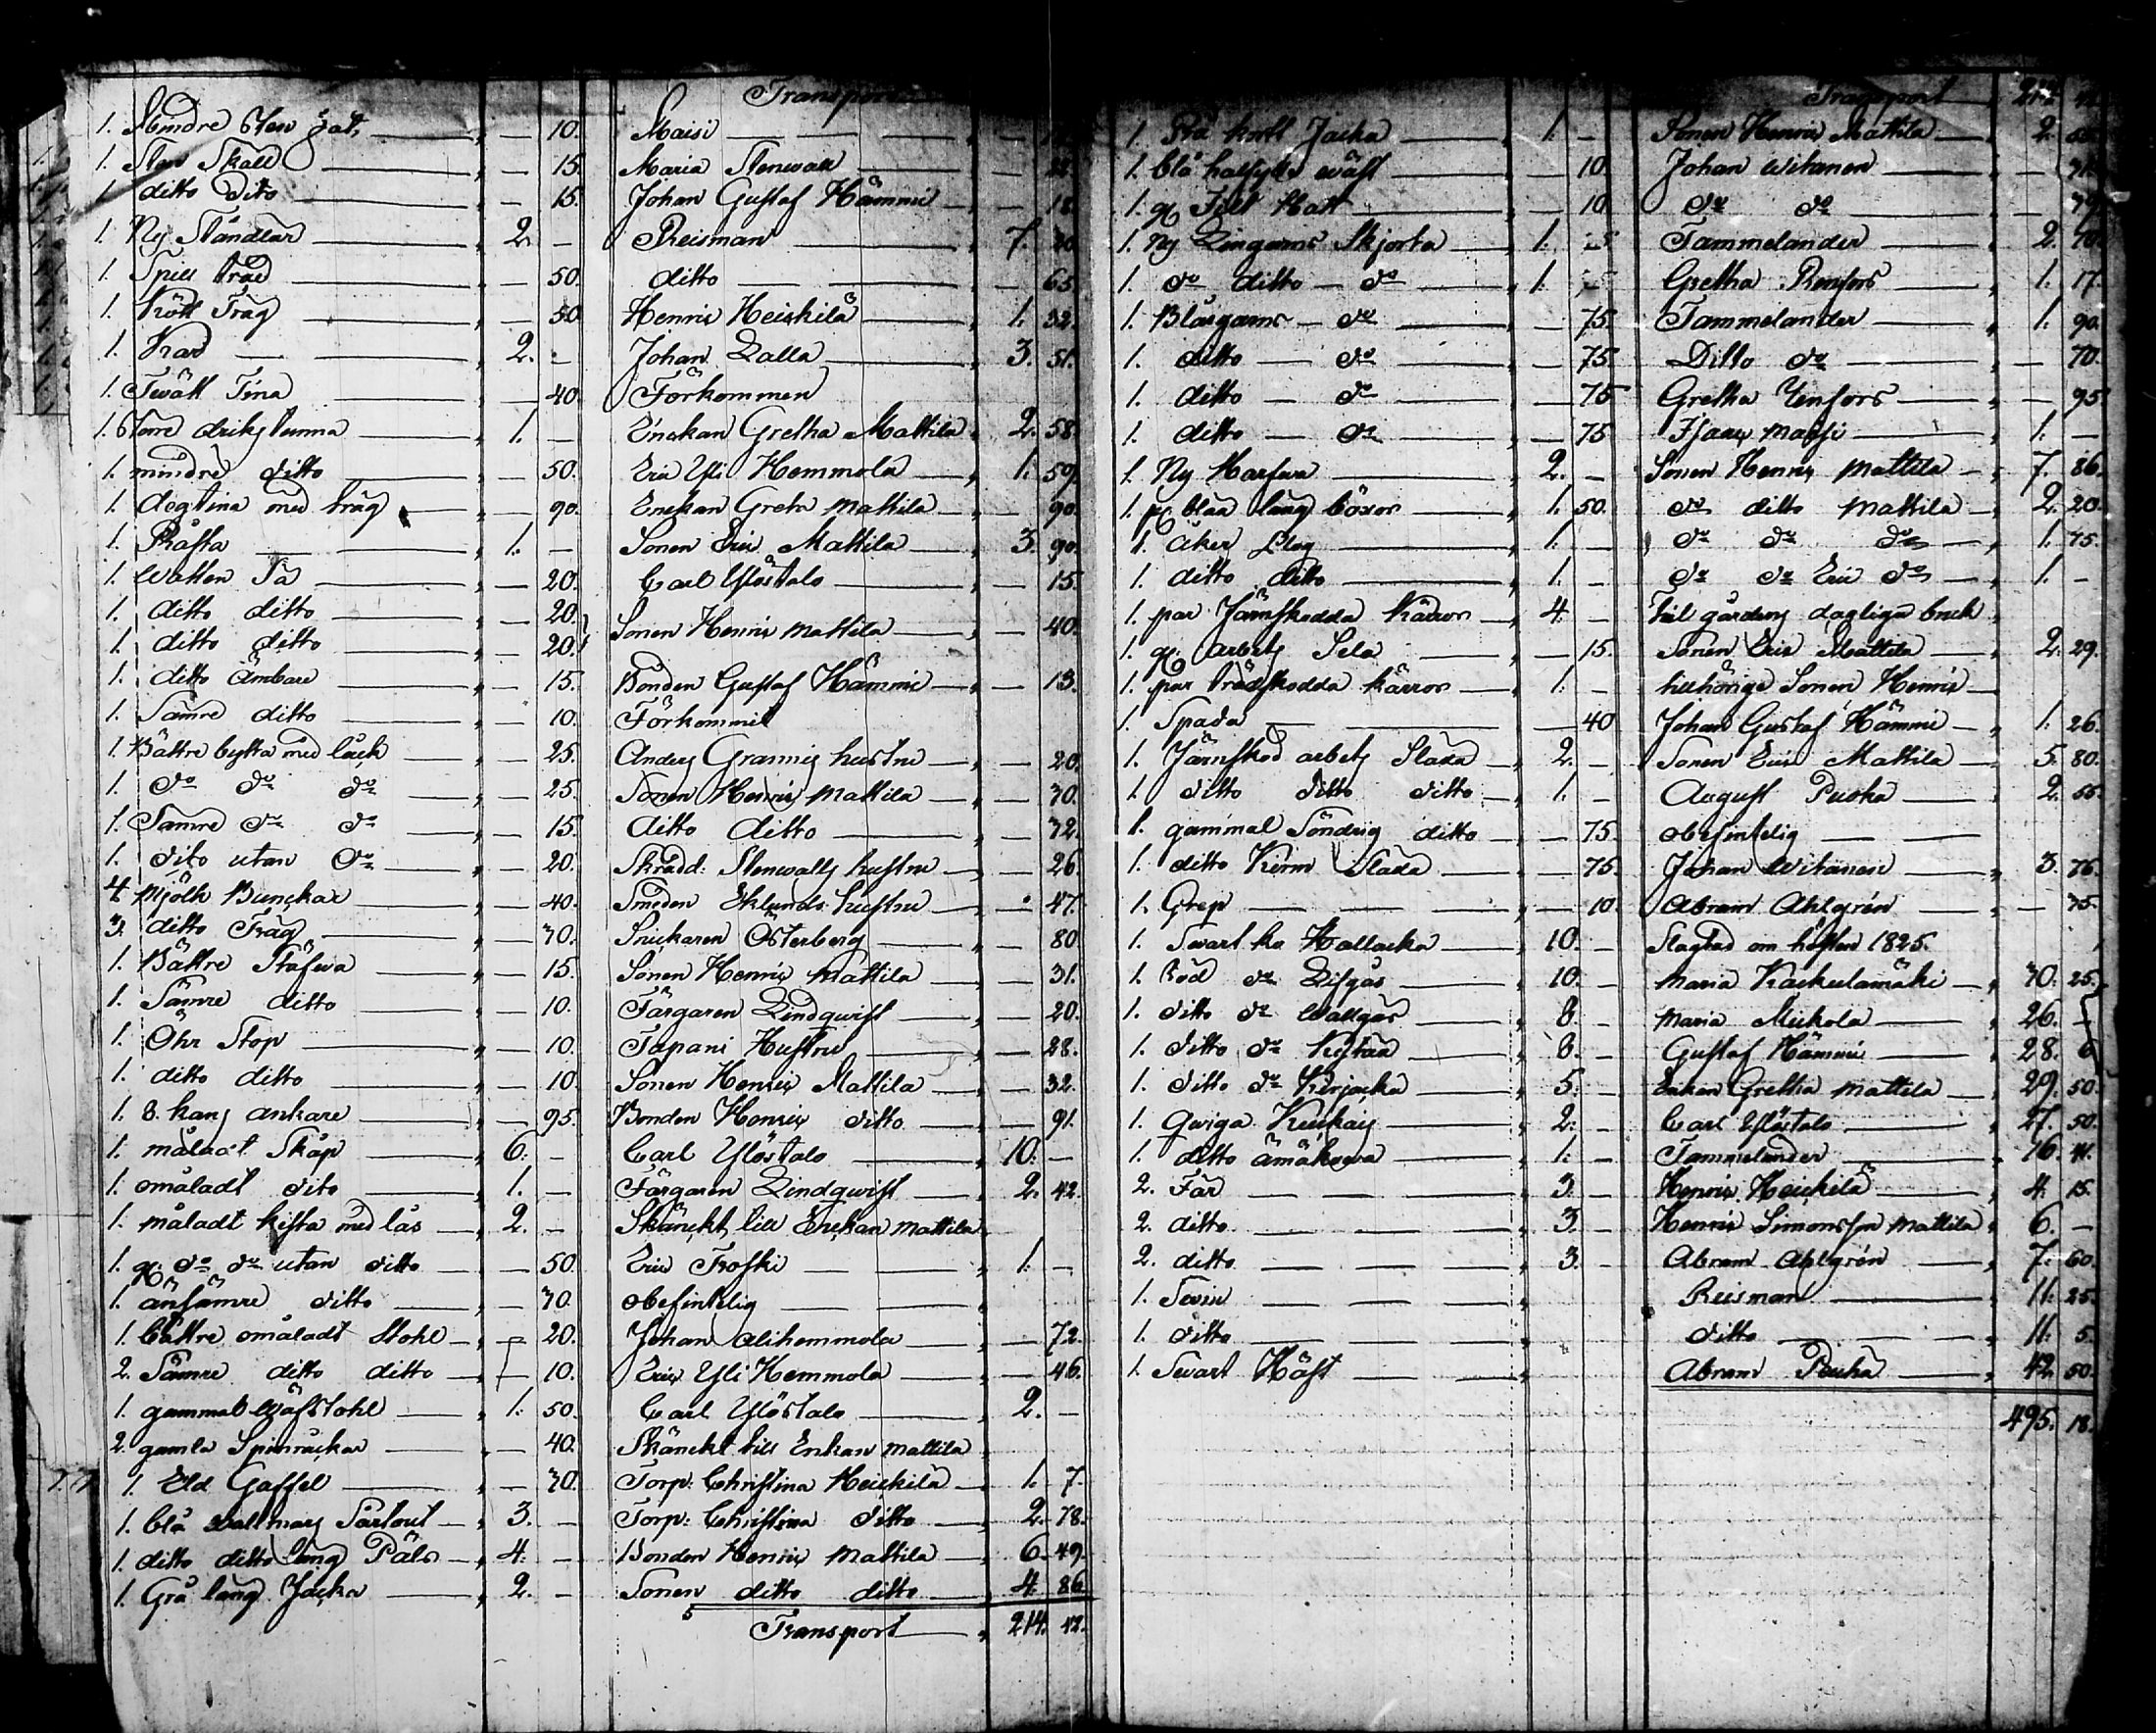 Transport
1. Mindre Sten fat, — 10. Maisi —
1. Sten Skåll — 15. Maria Stenwall —
1. ditto Dito — 15. Johan Gustaf Hämmi — 18.
1. Ny Ståndlar 2. — Reisman 7. 20
1. Spill Träd — 50. ditto — 63.
1. Kött Tråg — 50 Henrix Heickilä 1. 32.
1. Kard 2. — Johan Lalla 3. 51.
1. Twätt Tina — 40. Förkommen
1. Större drikstunna 1. — Enckan Gretha Mattila 2. 58.
1. mindre ditto — 50. Eric Yli Hemmola 1. 59.
1. degtina med tråg — 90. Enckan Greta Mattila — 90.
1. 1. — Sonen Eric Mattila 3. 90.
1. Watten Så — 20. Carl Ylöstalo — 15.
1. ditto ditto — 20. Sonen Henrix Mattila — 40.
1. ditto ditto — 20.
1. ditto Ämbare — 15. Bonden Gustaf Hämmi — 13.
1. Sämre ditto — 10. Förkommit
1. Bättre bytta med låck — 25. Anders Grannis hustru — 20.
1. do do do — 25. Sonen Henrix Mattila — 30.
1. Sämre do do — 15. ditto ditto — 32.
1. dito utan do — 20. Skrädd: Stenwalls hustru — 26.
4 Mjölk Bunckar — 40. Smeden Eklunds hustru — 47.
3. ditto Tråg — 30. Snickaren Österberg — 80.
1. Bättre Stäfwa — 15. Sonen Henrix Mattila — 31.
1. Sämre ditto — 10. Färgaren Lindqwist — 20.
1. Öhr Stop — 10. Tapani Hustru — 28.
1. ditto ditto — 10. Sonen Henrix Mattila — 32.
1. 8. kans ankare — 95. Bonden Henrix ditto — 91.
1. måladt Skåp 6. — Carl Ylöstalo 10. —
1. omåladt dito 1. — Färgaren Lindqwist 2. 42.
1. måladt kista med lås 2. — Skänckt till Enckan Mattila
1. gl: do do utan ditto — 50. Eric Froski 1. —
1. änsämre ditto — 30. obefintelig —
1. bättre omåladt Stohl — 20. Johan Alihommola — 72.
2. Sämre ditto ditto — 10. Eric Yli Hemmola — 46.
1. gammal Wäfstohl 1. 50. Carl Ylöstalo 2. —
2. gamla Spinråckar — 40. Skänckt till Enkan Mattila
1. Eld Gaffel — 30. Torp: Christina Heickilä 1. 7.
1. blå Wallmars Sartout 3. — Torp: Christina ditto 2. 78.
1. ditto ditto lång Päls 4. — Bonden Henrix Mattila 6. 49.
1. Grå lång Jacka 2. — Sonen ditto ditto 4. 86.
Transport 214. 42.
Transport 214.
1. Blå kort Jacka 1. — Sonen Henrix Mattila 2.
1. blå halfylle wäst — 10. Johan Witanen —
1. gl Filt Hatt — 10 do do —
1. Ny Lingarns Skjorta 1. Tammelander 2. 70.
1. do ditto do 1. Gretha Renfors 1. 17.
1. Blårgarns do — 75. Tammelander 1. 90.
1. ditto do — 75. Ditto do — 70.
1. ditto do — 75 Gretha Renfors — 95
1. ditto do — 75 1. —
1. Ny Harfwa 2. — Sonen Henrix Mattila 7. 86.
1. pr blåa lång böxor 1. 50. do ditto Mattila 2. 20.
1. Åker Plog 1. — do do do 1. 75.
1. ditto ditto 1. — do do Eric do 1. —
1. par Järnskodda Kärror 4. — Till gårdens dagliga bruk
1. gl: arbets Sela — 15. Sonen Eric Mattila 2. 29.
1. par trädskodda kärror 1. — tillhörige Sonen Henrix
1. Spada — 40 Johan Gustaf Hämmi 1. 26.
1. Järnskod arbets Släda 2. — Sonen Eric Mattila 5. 80.
1. ditto ditto ditto 1. — August Puska 2. 55.
1. gammal Söndrig ditto — 75. obefintelig —
1. ditto Körn Släda — 75. Johan Witanen 3. 76.
1. Grep — 10. Abram Ahlgrén — 35.
1. Swart ko Hallacka 10. — Slagtad om hösten 1825.
1. Röd do Lifgås 10. — Maria Kackulamäki 30. 25.
1. ditto do Wallgås 8. — Maria Mickola 26. —
1. ditto do 8. — Gustaf Hämmi 28. 6
1. ditto do Kirjacka 5. — Enkan Gretha Mattila 29. 50.
1. Qwiga 2. — Carl Ylöstalo 27. 50.
1. ditto 1. — Tammelander 16. 41.
2. Får 3. — Henrix Heickilä 4. 15.
2. ditto 3. — Henrix Simonsson Mattila 6. —
2. ditto 3. — Abram Ahlgrén 7. 60.
1. Swin — Reisman 11. 25.
1. ditto — ditto 11. 5.
1. Swart Häst — Abram Puska 42. 50.
495. 18.